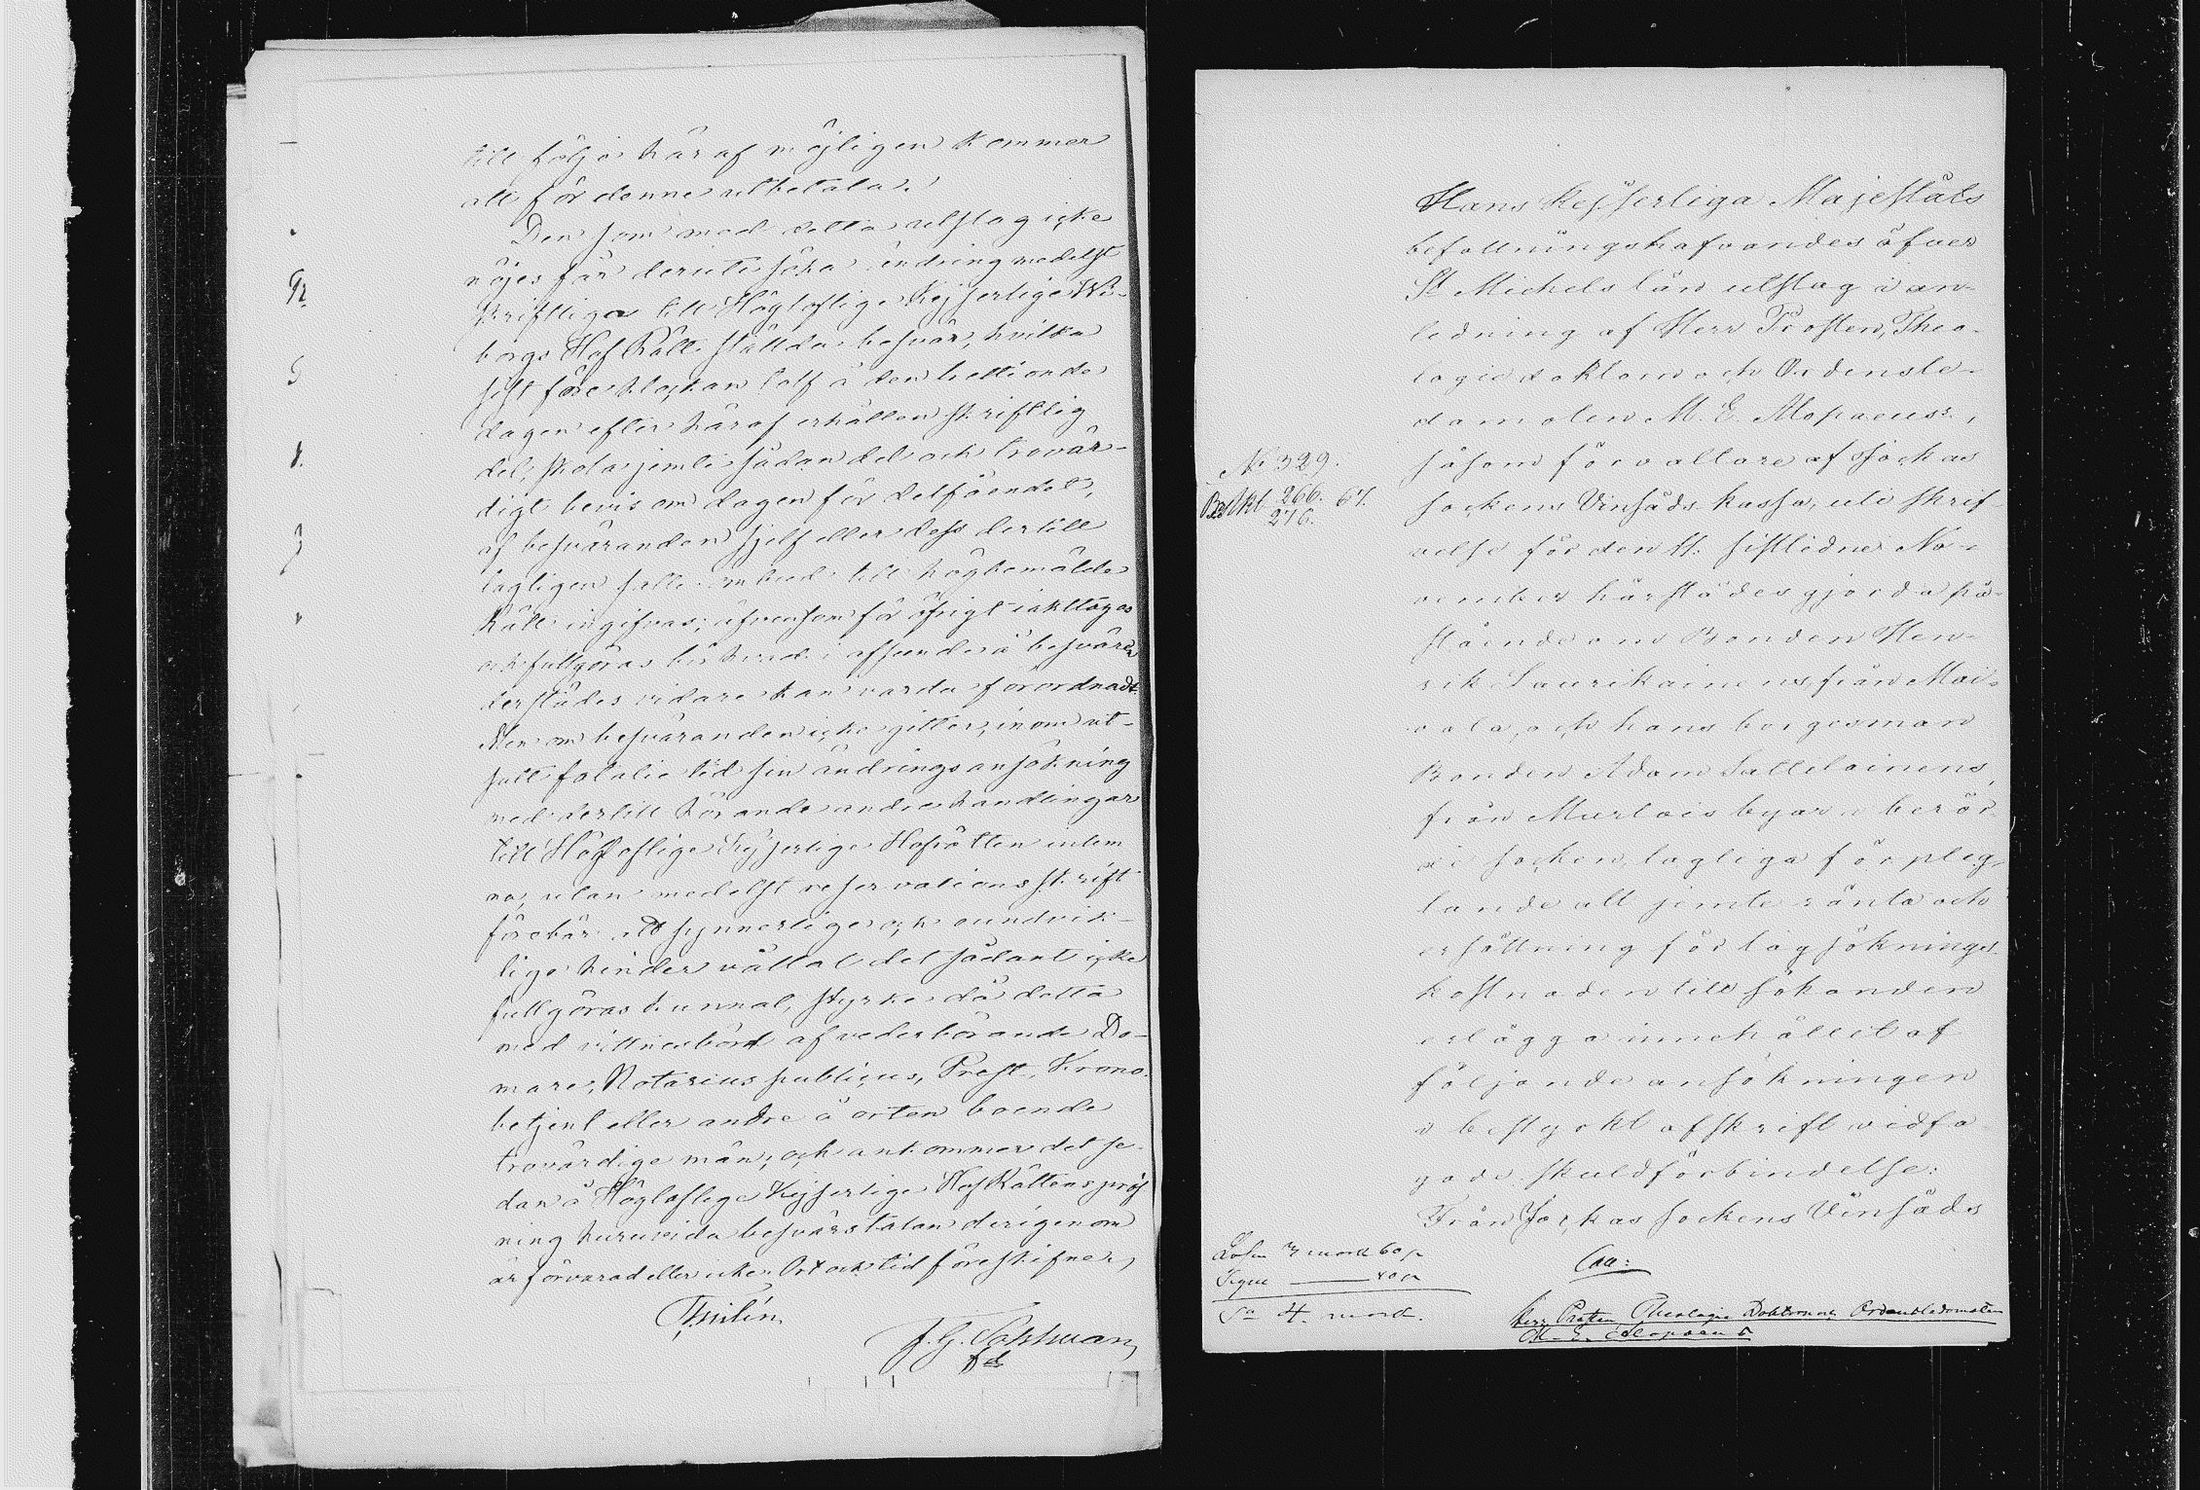 till följe häraf möjligen kommer
att för denne utbetala.
Den som med detta utslag icke
nöjes får deruti söka ändring medelst
skriftliga till Högloflige Kejserlige Wi-
borgs Hof Rätt stälda besvär, hvilka
sist före klockan tolf å den trettionde
dagen efter häraf erhållen skriftlig
del, skola jemte sådan del och trovär-
digt bevis om dagen för delfåendet,
af besväranden sjelf eller dess dertill
lagligen satte ombud till högbemälde
Rätt ingifvas; äfvensom för öfrigt iakttagas
och fullgöras bör hvad i afseende å besvären
derstädes vidare kan varda förordnadt.
Men om besväranden icke gitter, inom ut-
satt fatalie tid sin ändringsansökning
med dertill hörande andre handlingar
till Högloflige Kejserlige Hofrätten inlem
na, utan medelst reservationsskrift
förebär att synnerlige och oundvik-
lige hinder vållat det sådant icke
fullgöras kunnat, styrke då detta
med vittnesbörd af vederbörande Do-
mare, Notarius publicus, Prest, Krono-
betjent eller andre å orten boende
trovärdige män; och ankommer det se-
dan å Högloflige Kejserlige Hof Rättens pröf
ning huruvida besvärstalan derigenom
är förvarad eller icke. Ort och tid föreskifne,
Hans Kejserliga Majestäts
befallningshafvandes öfver
St Michels län utslag i an-
ledning af Herr Prosten, Theo-
logie doktorn och Ordensle-
damoten M. E. Alopaeus,
såsom förvaltare af Jockas
No 329.
sockens Utsädskassa, uti skrif-
266. 67.
276.
velse för den 11. sistlidne No-
vember härstädes gjorda på-
stående om Bonden Hen-
rik Laurikainens från Mai-
vala och hans borgesman
Bonden Adam Sattelainens,
från Murtois byar i berör-
de socken, lagliga förplig-
tande att jemte ränta och
ersättning för lagsöknings-
kostnaden till sökanden
erlägga innehållet af
följande ansökningen
i bestyrkt afskrift vidfo-
gade skuldförbindelse:
Från Jockas sockens Utsäds
Lösen 3 mark 60 p
40 p
Sa 4 mark.
Herr Prosten, Theologie Doktorn och Ordensledamoten
M. E. Alopaeus